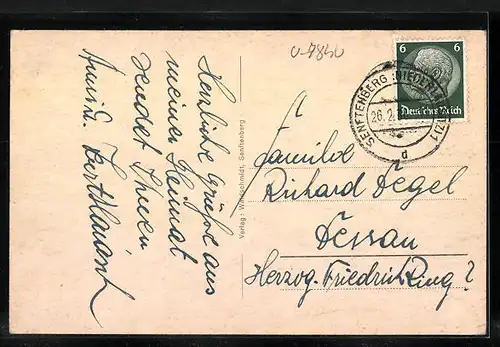 U-7840
Herzliche Grüße aus
meiner Heimat
sendet Ihnen
Kurt
Verlag: Waldschmidt, Senftenberg
6 6
Deutsches Reich
SENFTENBERG (NIEDERLAUSITZ)
26.2.
d
Familie
Richard Degel
Dessau
Herzog-Friedrich Ring?